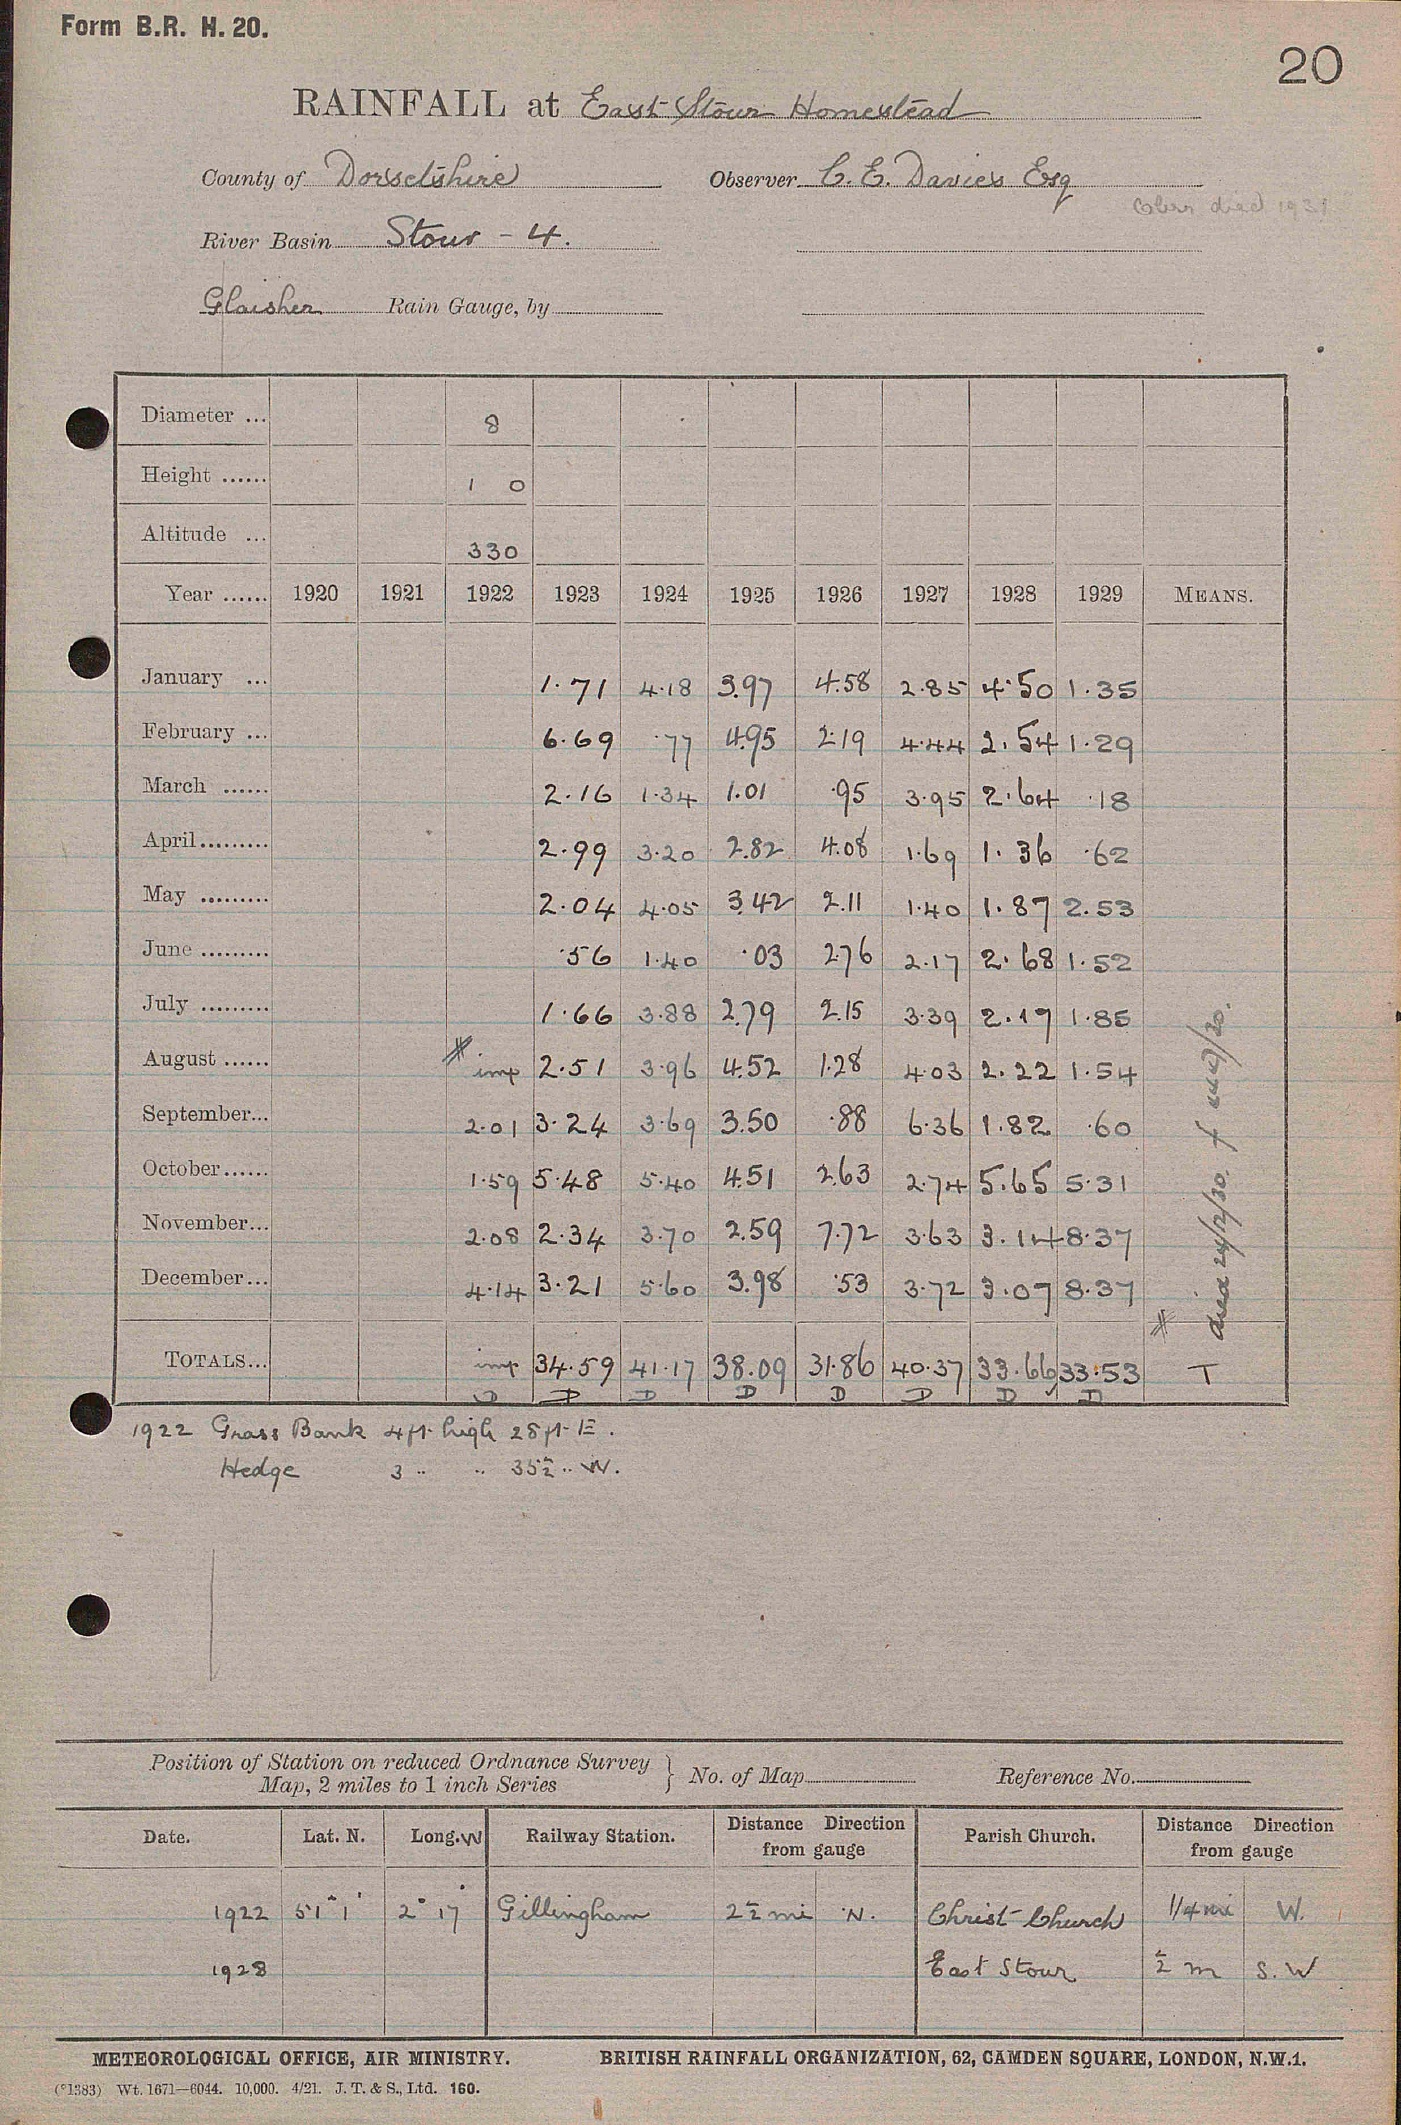 Form B.R. H. 20.
20
RAINFALL at East Stour Homestead
County of Dorsetshire Observer C. E. Davies Esq
Obsr died 1931
River Basin Stour - 4.
Glaisher Rain Gauge, by
Diameter ... 8
Height ...... 1 0
Altitude ... 330
Year ...... 1920 1921 1922 1923 1924 1925 1926 1927 1928 1929 MEANS.
January ... 1.71 4.18 3.97 4.58 2.85 4.50 1.35
February ... 6.69 .77 4.95 2.19 4.44 2.54 1.29
March ...... 2.16 1.34 1.01 .95 3.95 2.64 .18
April ......... 2.99 3.20 2.82 4.08 1.69 1.36 .62
May ......... 2.04 4.05 3.42 2.11 1.40 1.87 2.53
June ......... .56 1.40 .03 2.76 2.17 2.68 1.52
July ......... 1.66 3.88 2.79 2.15 3.39 2.17 1.85
August ...... # imp 2.51 3.96 4.52 1.28 4.03 2.22 1.54
September... 2.01 3.24 3.69 3.50 .88 6.36 1.82 .60
October...... 1.59 5.48 5.40 4.51 2.63 2.74 5.65 5.31
November... 2.08 2.34 3.70 2.59 7.72 3.63 3.14 8.37
December... 4.14 3.21 5.60 3.98 .53 3.72 3.07 8.37
#
TOTALS... imp 34.59 41.17 38.09 31.86 40.37 33.66 33.53 T
D D D D D D D D
1922 Grass Bank 4 ft. high 28 ft. E.
Hedge 3 " " 35½ " W.
Position of Station on reduced Ordnance Survey Map, 2 miles to 1 inch Series } No. of Map Reference No.
Date. Lat. N. Long. W Railway Station. Distance Direction from gauge Parish Church. Distance Direction from gauge
1922 51° 1' 2° 17' Gillingham 2½ mi N. Christ Church 1/4 mi W.
1928 East Stour ½ m S.W
METEOROLOGICAL OFFICE, AIR MINISTRY. BRITISH RAINFALL ORGANIZATION, 62, CAMDEN SQUARE, LONDON, N.W.1.
(*1383) Wt. 1671—6044. 10,000. 4/21. J. T. & S., Ltd. 160.